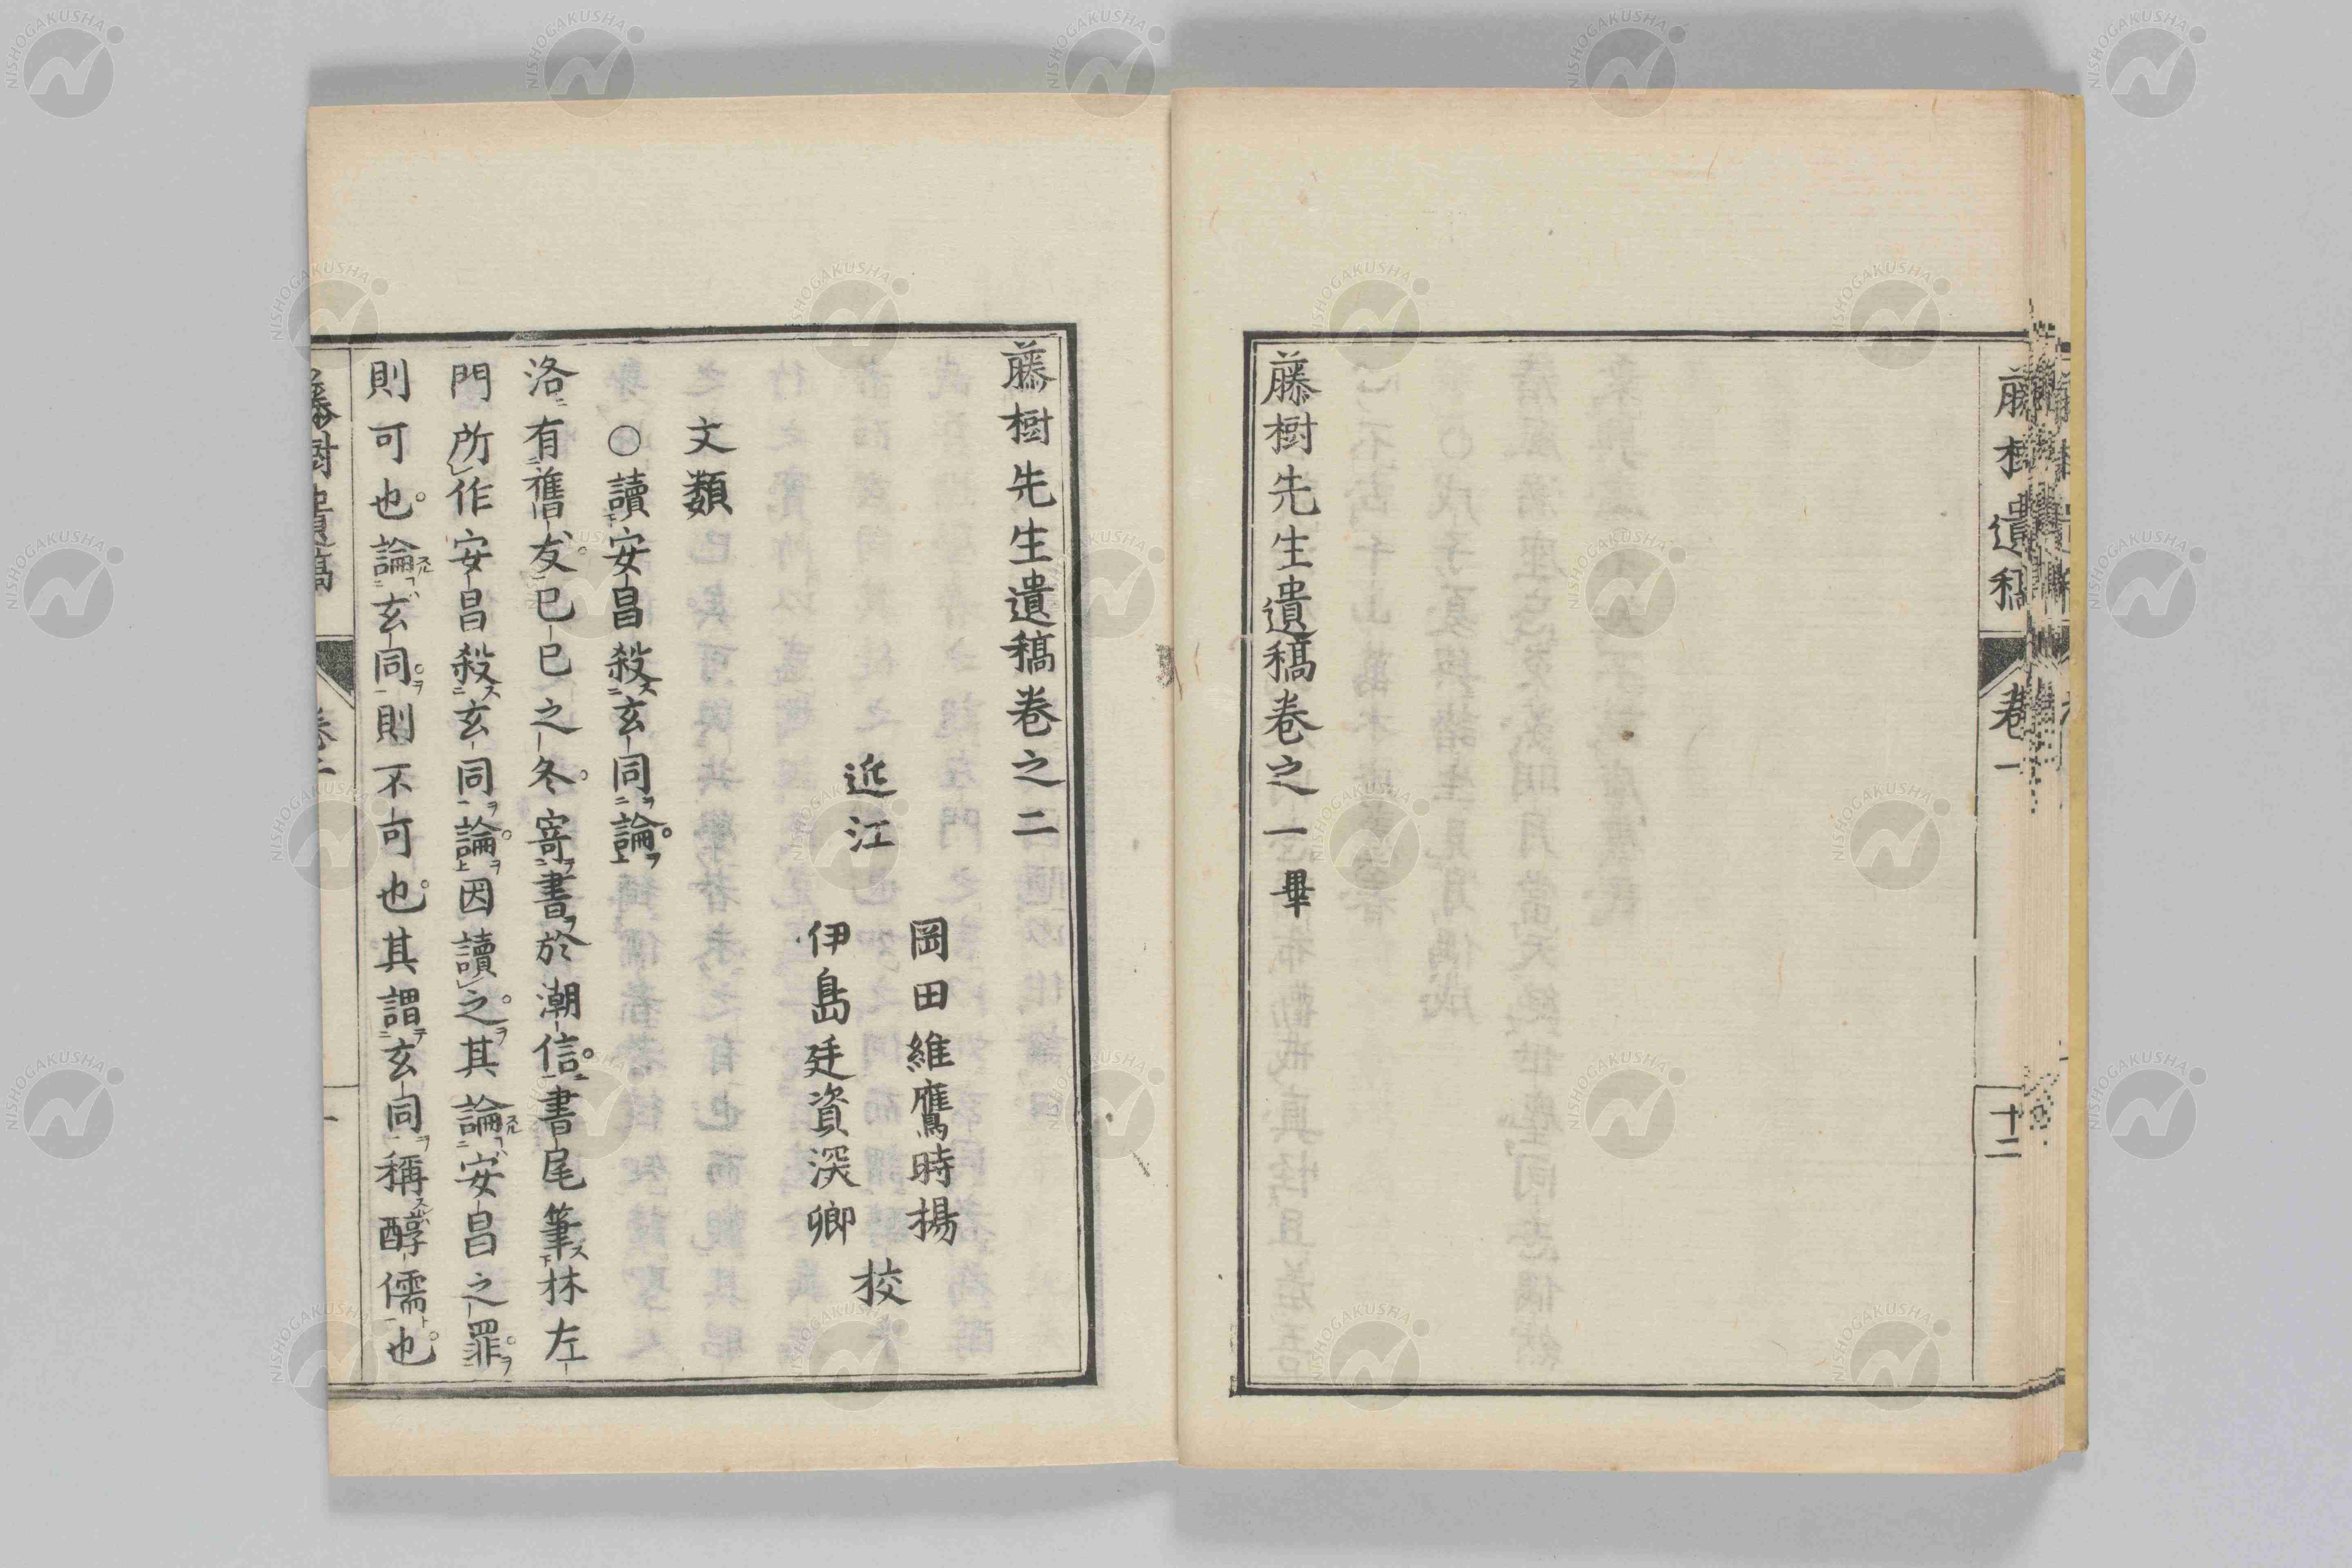 藤樹先生遺稿卷之一畢
卷一
十二
藤樹先生遺稿卷之二
岡田維鷹時揚
近江
校
伊島廷資深卿
文類
○讀安昌殺玄同論
洛有舊友己巳之冬寄書於潮信書尾筆林左
門所作安昌殺玄同論因讀之其論安昌之罪
則可也論玄同則不可也其謂玄同稱醇儒也
藤樹遺稿
卷二
一
NISHOGAKUSHA